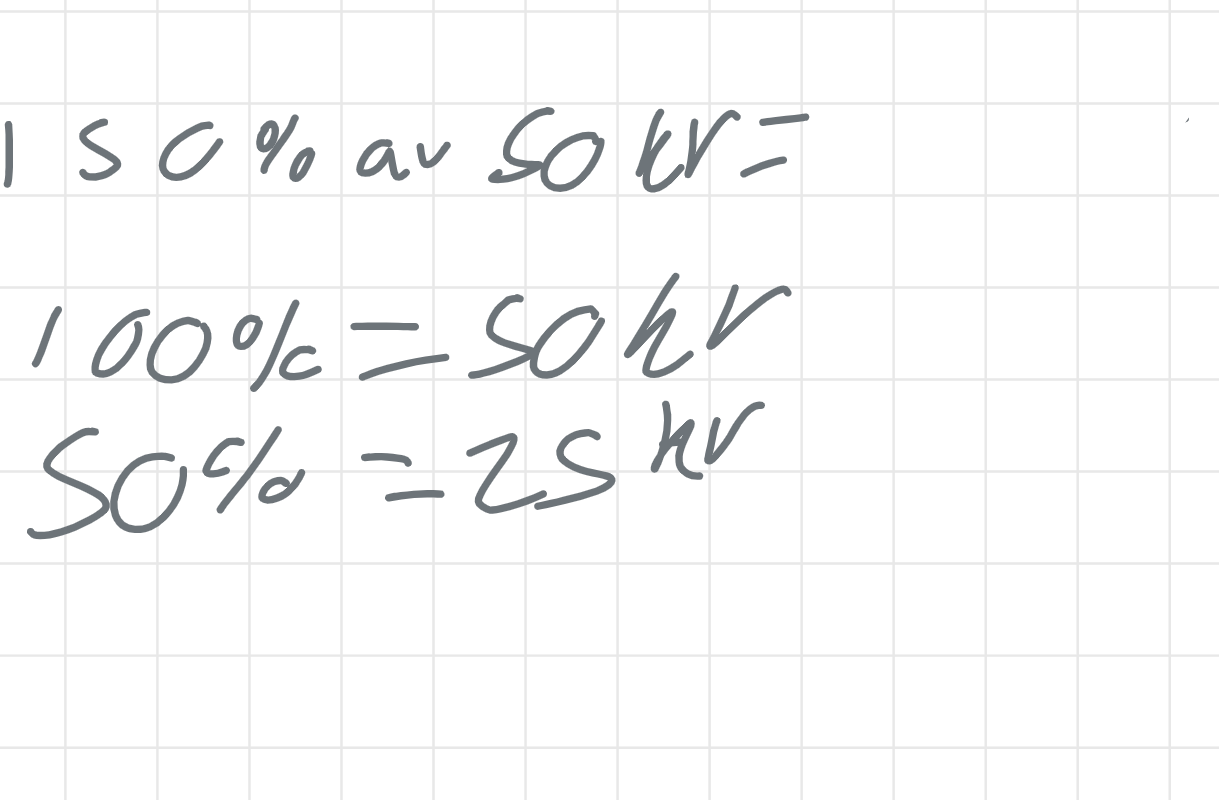 150% av 50 kr =
100% = 50 kr
50% = 25 kr